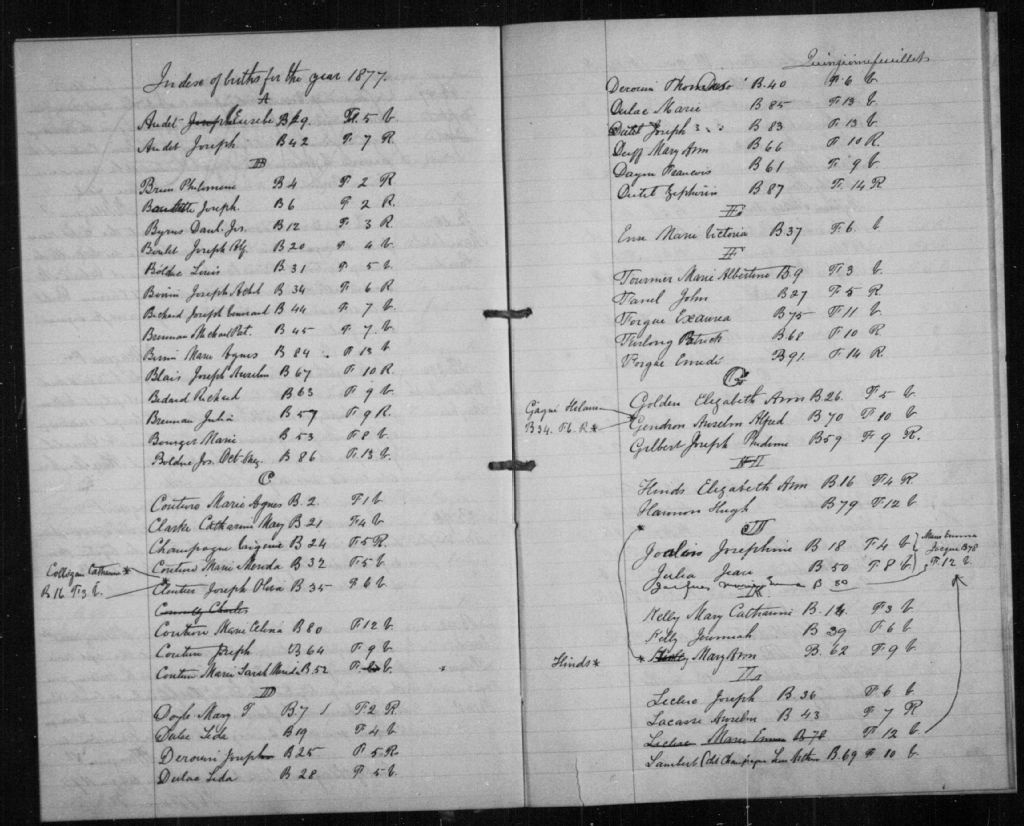 Index of births for the year 1877.
A
Audet Joseph Eusebe B 29. F. 5 V.
Audet Joseph B 42 F. 7 R.
B
Brun Philomene B 4 F 2 R
Joseph. B 6 F 2 R.
Byrns Danl. Jos. B 12 F 3 R
Boulet Joseph Alf. B 20 F 4 V.
Bolduc Louis B. 31 F. 5 V.
Joseph Achil B 34 F. 6 R
Bechard Joseph B 44 F. 7 V.
Brennan Michael Pat. B 45 F 7. V.
Marie Agnes B 84 F. 13 V.
Blais Joseph Anselm B 67 F. 10 R.
Bedard Richard B 63 F 9 V.
Brennan Julia B 57 F 9 R.
Marie B 53 F 8 V.
Bolduc Jos. Oct. B 86 F. 13 V.
C
Couture Marie Agnes B. 2. F 1 V
Clarke Catharine Mary B 21 F 4 V
Champagne Eugenie B 24 F 5 R.
Couture Marie B 32 F 5 V
Colligan Catherine *
B 16 F 3 V.
Cloutier Joseph B 35 F 6 V.
Connolly Charles
Couture Marie Celina B 80 F 12 V
Couture Joseph B 64 F 9 V
Couture Marie Sarah B. 52 F. V.
D
Doyle Mary T B 7 F 2 R.
Dulac Lida B 19 F 4 V.
Derouin Joseph B 25 F. 5 R
Dulac Lida B 28 F 5 V.
Derouin Thomas B. 40 F. 6 V.
Dulac Marie B 85 F 13 V.
Dutet Joseph B 83 F. 13 V.
Duff Mary Ann B 66 F 10 R.
Francois B 61 F. 9 V
Dutet Zephirin B 87 F. 14 R
E
Marie Victoria B 37 F 6. V
F
Fournier Marie Albertine B 9 F 3 V.
John B 27 F 5 R.
Forgue Exaurea B 75 F 11 V
Furlong Patrick B 68 F 10 R
Forgue B 91. F. 14 R
G
Golden Elizabeth Ann B 26 F 5 V
Gagné
B 34. F 6. R *
Gendron Anselm Alfred B 70 F 10 V.
Gilbert Joseph B 59 F 9 R.
H
Hinds Elizabeth Ann B 16 F 4 R
Hannon Hugh B 79 F 12 V
J
Josephine B 18 F 4 V
Julia Jean B 50 F 8 V
Jacques Marie Emma B 80
Marie Emma
Jacque B 78
F. 12 V.
K
Kelly Mary Catharine B. 14 F 3 V
Kelly Jeremiah B 39 F 6 V
Hinds *
* Mary Ann B. 62 F 9 V
L
Leclerc Joseph B 36 F 6 V
Lacasse Anselm B 43 F 7 R
Leclerc Marie Emma B 78 F 12 V
Lambert B. 69 F 10 V.